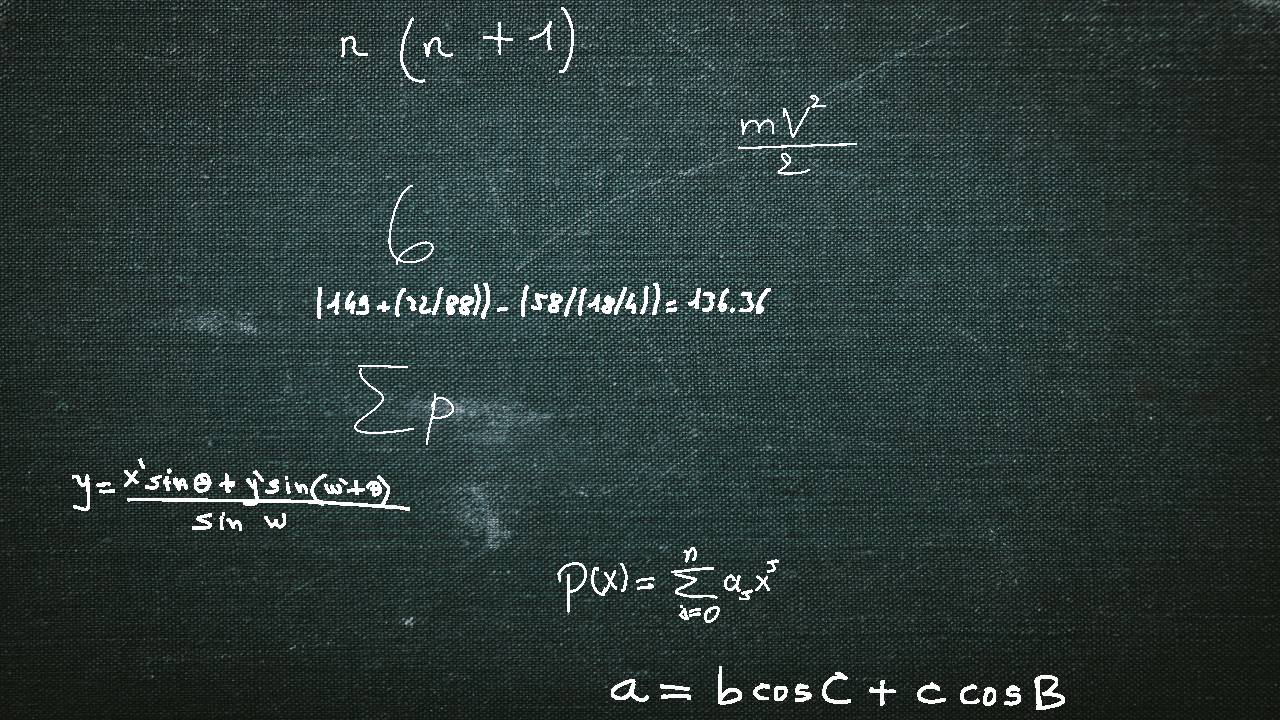 n (n + 1)
mV²
2
6
(149+(32/88))-(58/(18/4))=136.36
∑ p
y = x' sin θ + y' sin(w'+θ)
sin w
P(x) = n ∑ s=0 aₛxˢ
a = b cos C + c cos B